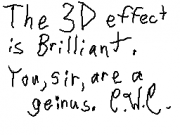 The 3D effect
is Brilliant.
You, sir, are a
geinus. C.W.C.